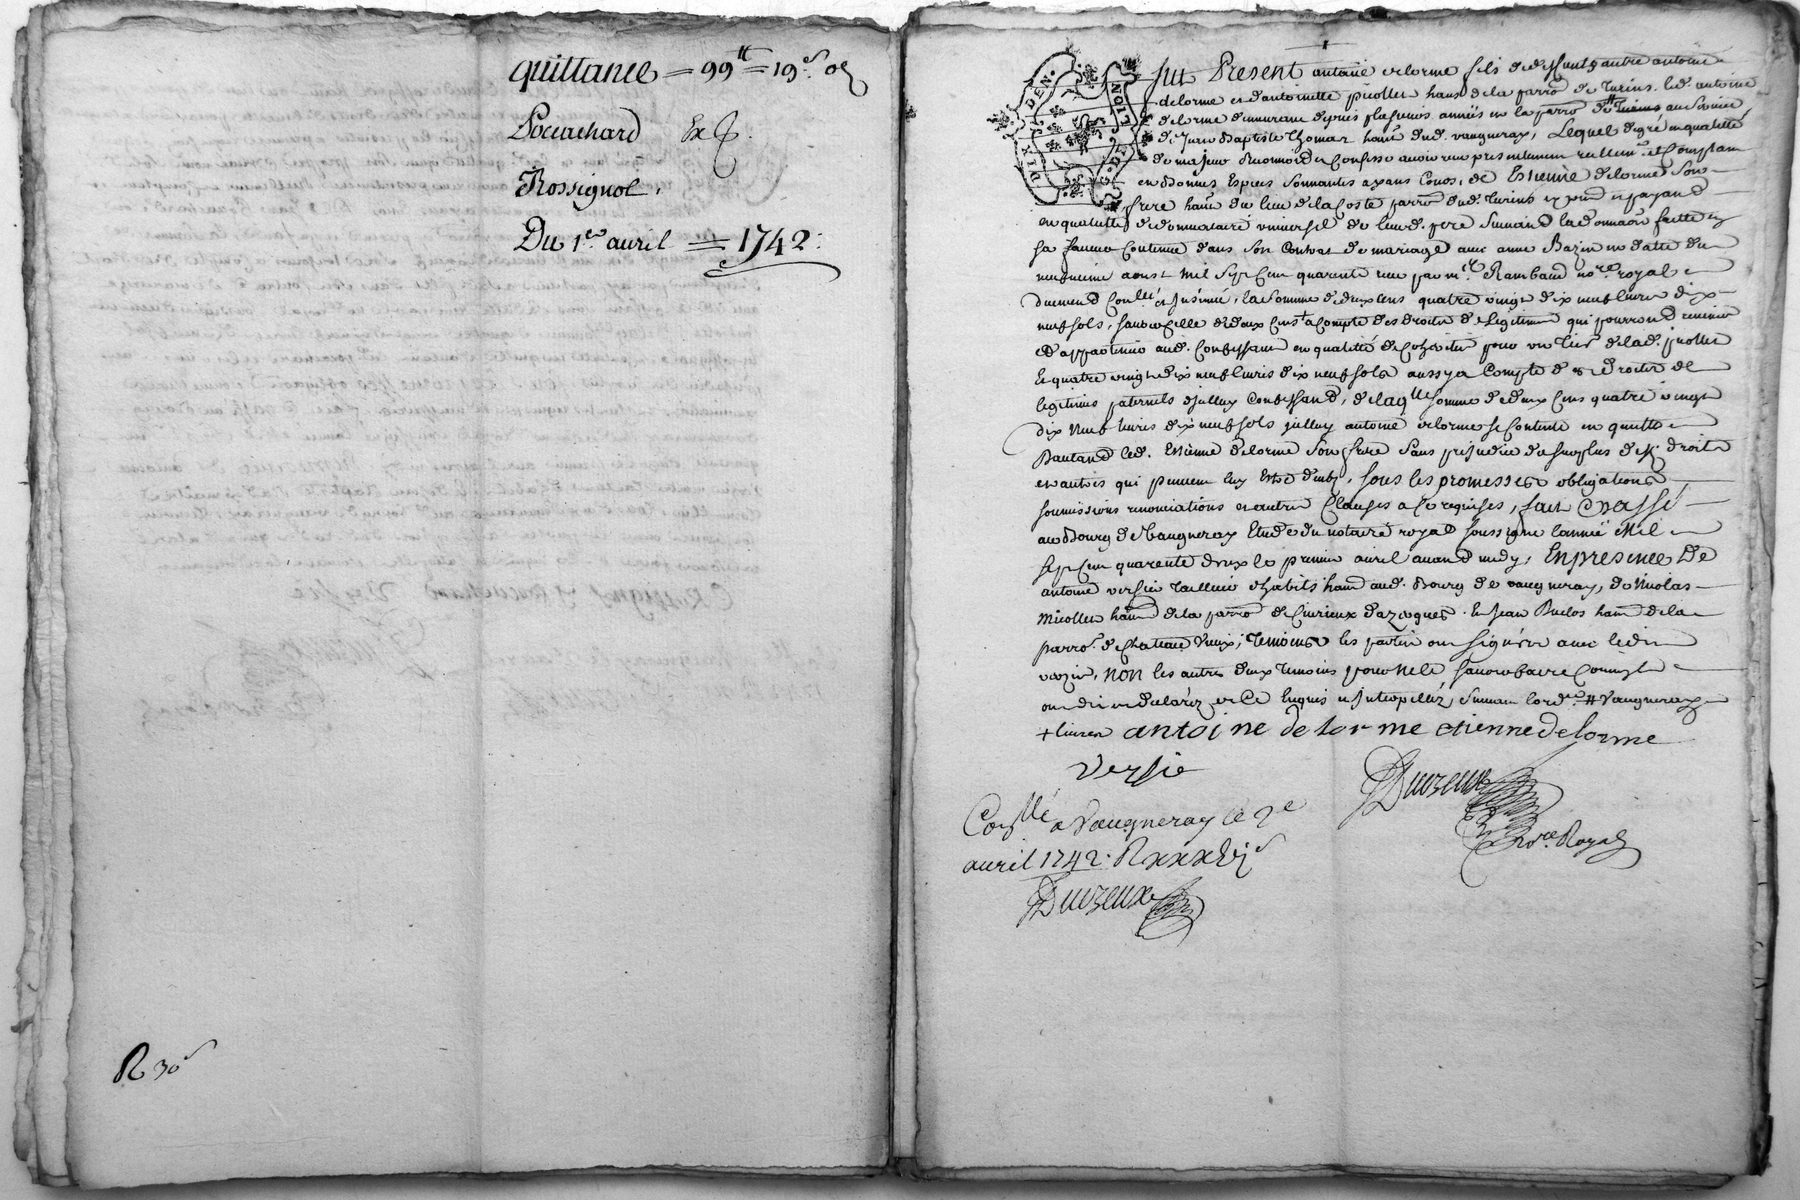 quittance = 99ᵗᵗ = 19ˢ
Rossignol.
Du 1ᵉʳ avril = 1742:
R 30ˢ
GEN. DE LYON
Fut Present antoine delorme fils de deffunts autre antoine
delorme et d'antoinette picollet habᵗ de la parrᵒ de Turins led. antoine
delorme demeurant depuis plusieurs années en la parrᵒ de au service
de Jean Baptiste Thomas habᵗ dud. vaugneray, Lequel de gré en qualitté
de majeur Reconnoid et Confesse avoir reçu presentement reellemᵗ et Comptant
en Bonnes Especes Sonnantes ayans Cours, de Estienne delorme Son
frere habᵗ du lieu de la Coste parrᵒ dud. Turins et payand
en qualitté de donnataire universel de leurd. pere Suivand la donnaon faitte en
sa faveur Contenue dans Son Contrat de mariage avec anne Bazin en datte du
aoust Mil Sept Cent quarente reçu par mʳ Rambaud noʳᵉ royal
duement Conᵗˡˡᵉ et Insinué, la Somme de deux Cens quatre vingt dix neuf livres dix
neuf sols, Sçavoir Celle de deux Cens + a Compte des droits de Legitime qui pourrond revenir
et appartenir aud. Confessant en qualitté de Cohéritier pour un tiers de lad. picollet
Et quatre vingt dix neuf livres dix neuf sols aussy a Compte de ses Droits de
legitimes paternels d'jcelluy Confessand, de laqˡˡᵉ Somme de deux Cens quatre vingt
dix Neuf livres dix neuf sols jcelluy antoine delorme se Contente en quitte
d'autand led. Estienne delorme Son frere Sans prejudice du surplus desd. droits
et autres qui peuvent luy Estre deubs, sous les promesses obligations
soumissions renonciations et autres Clauses a Ce requises, fait et Passé
au Bourg de Vaugneray Etude du notaire royal soussigné l'année Mil
sept Cent quarente deux le premier avril avand midy, En presence De
antoine versie Tailleur d'habits habᵗ aud. Bourg de vaugneray, de Nicolas
Micollet habᵗ de la parrᵒ de Civrieux d'azergues. et Jean Duclos habᵗ de la
parrᵒ. de Chateau Vieux, temoins les parties ont signées avec led.
versie, non les autres deux temoins pour ne le sçavoir faire Comme ils
ont dit et declaré de Ce Enquis et Interpellés, Suivant l'ordᶜᵉ # Vaugneray
+ livres antoine delorme etienne delorme
versie
Duvzeux
noʳᵉ Royal
Conᵗˡˡᵉ a Vaugneray le 2ᵉ
avril 1742. R xxxvjˢ
Duvzeux